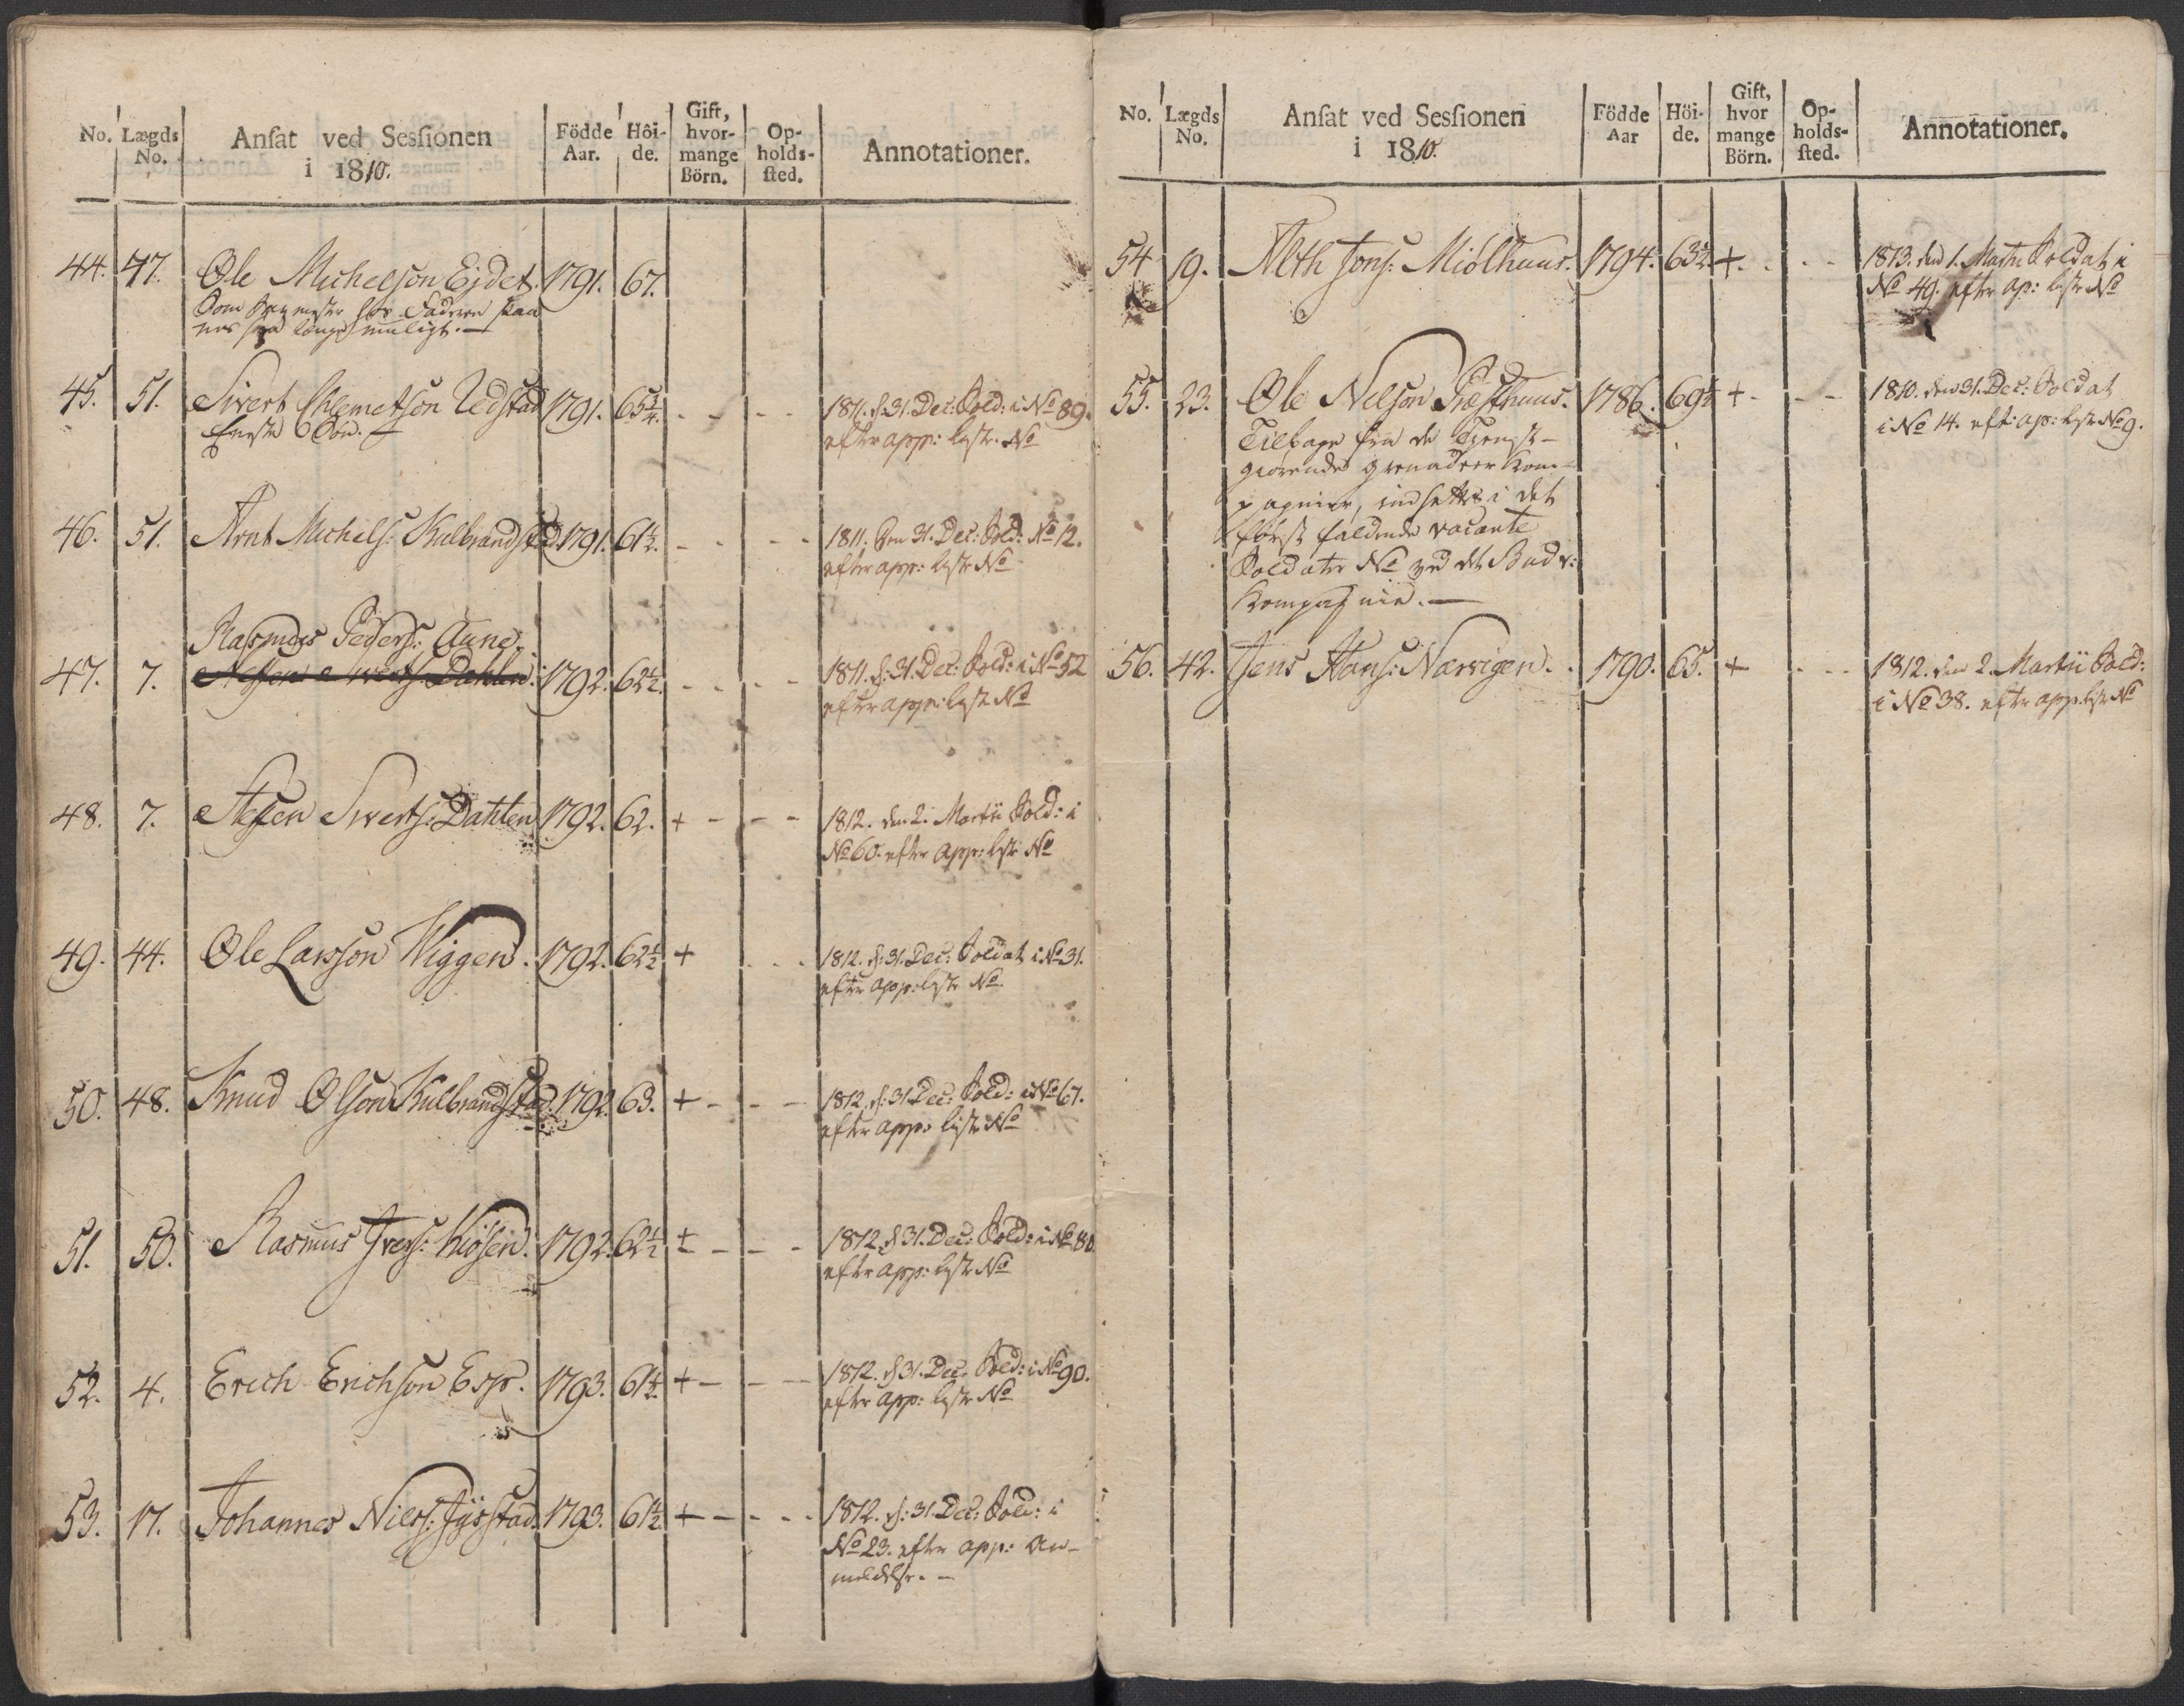 No. Lægds No. Ansat ved Sessionen i 1810. Födde Aar. Höi-de. Gift, hvor-mange Börn. Op-holds-sted. Annotationer.
44. 47. Ole Michelson Ejdet. 1791. 67.
Som hos Faderen
saa længe muligt. —
45. 51. Sivert Chlemetson Udstad 1791. 65¾. - - - - 1811. d. 31. Dec: Sold: i No 89.
Eneste Søn. efter app: liste No
46. 51. Arnt Michels: Kulbrandstad. 1791. 61½. - - - - 1811. Den 31. Dec: Sold: No 12.
efter app: liste No
Rasmus Peders: Aune.
47. 7. Steffen Siverts: Dahlen. 1792. 62½. - - - - 1811. d: 31. Dec: Sold: i No 52
efter app: liste No
48. 7. Steffen Siverts: Dahlen 1792. 62. + - - - 1812. den 2. Martii Sold: i
No 60. efter app: liste No
49. 44. Ole Larsson Wiggen. 1792. 62½ + . . . 1812. d: 31. Dec: Soldat i No 31.
efter app: liste No.
50. 48. Knud Olson Kulbrandstad. 1792. 63. + - - - 1812. d: 31. Dec: Sold: i No 67.
efter app: liste No
51. 50. Rasmus Ivers: Kiösen. 1792. 62½ + - - - 1812. d 31. Dec: Sold: i No 80.
efter app: liste No
52. 4. Erich Erichson Esp. 1793. 61½. + - - - 1812. d 31. Dec. Sold: i No 90.
efter app: liste No
53. 17. Johannes Niels: 1793. 61½. + - - - - 1812. d: 31. Dec: Sold: i
No 23. efter app: An-
meldelse. —
No. Lægds No. Ansat ved Sessionen i 1810. Födde Aar Höi-de. Gift, hvor mange Börn. Op-holds-sted. Annotationer.
54 19. Jons: Miölhuus. 1794. 63½ + . . - - 1813. den 1. Martii Soldat i
No 49. efter ap: liste No
55. 23. Ole Nelson Præsthuus. 1786. 69½ + - - - 1810. den 31. Dec: Soldat
i No 14. eft: ap: liste No 9.
Tilbage fra de Tienest-
giörende grenadeer Kom-
pagnier, indsættes i det
först faldende vacante
Soldater No ved det
Kompagnie. —
56. 42. Jens Hans: Narvigen. . 1790. 65. + . - - 1812. den 2. Martii Sold:
i No 38. efter app: liste No